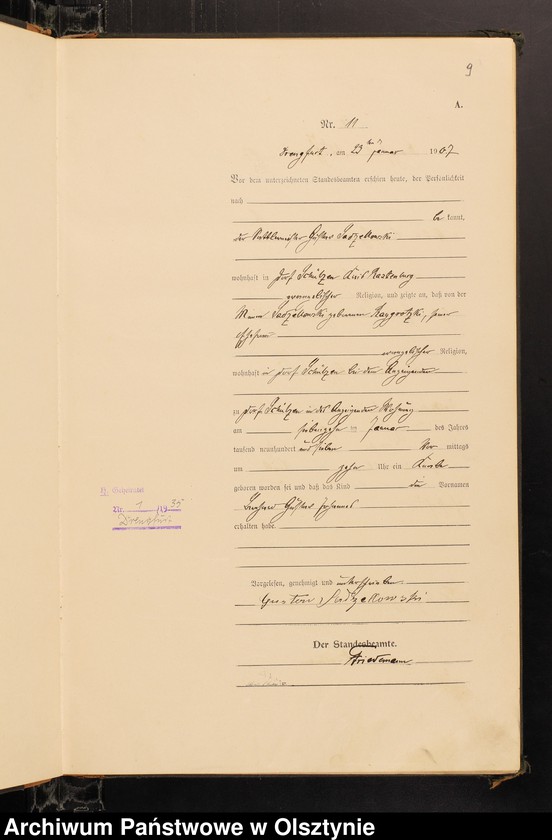 9
A.
Nr. 11
Drengfurt, am 23ten Januar 1907
Vor dem unterzeichneten Standesbeamten erschien heute, der Persönlichkeit
nach
be kannt,
der Gustav Sadzekowski
wohnhaft in Dorf Schülzen Kreis Rastenburg
evangelischer Religion, und zeigte an, daß von der
Sadzekowski geborenen seiner
Ehefrau
evangelischer Religion,
wohnhaft in Dorf Schülzen bei dem Anzeigenden
zu Dorf Schülzen in des Anzeigenden Wohnung
am siebenzehn ten Januar des Jahres
tausend neunhundert und sieben Vor mittags
um zehn Uhr ein Knabe
geboren worden sei und daß das Kind die Vornamen
Gustav Johannes
erhalten habe
H. Geheiratet
Nr. 1/19
Drengfurt
Vorgelesen, genehmigt und unterschrieben
Gustav Sadzekowski
Der Standesbeamte.
Friedemann
Archiwum Państwowe w Olsztynie